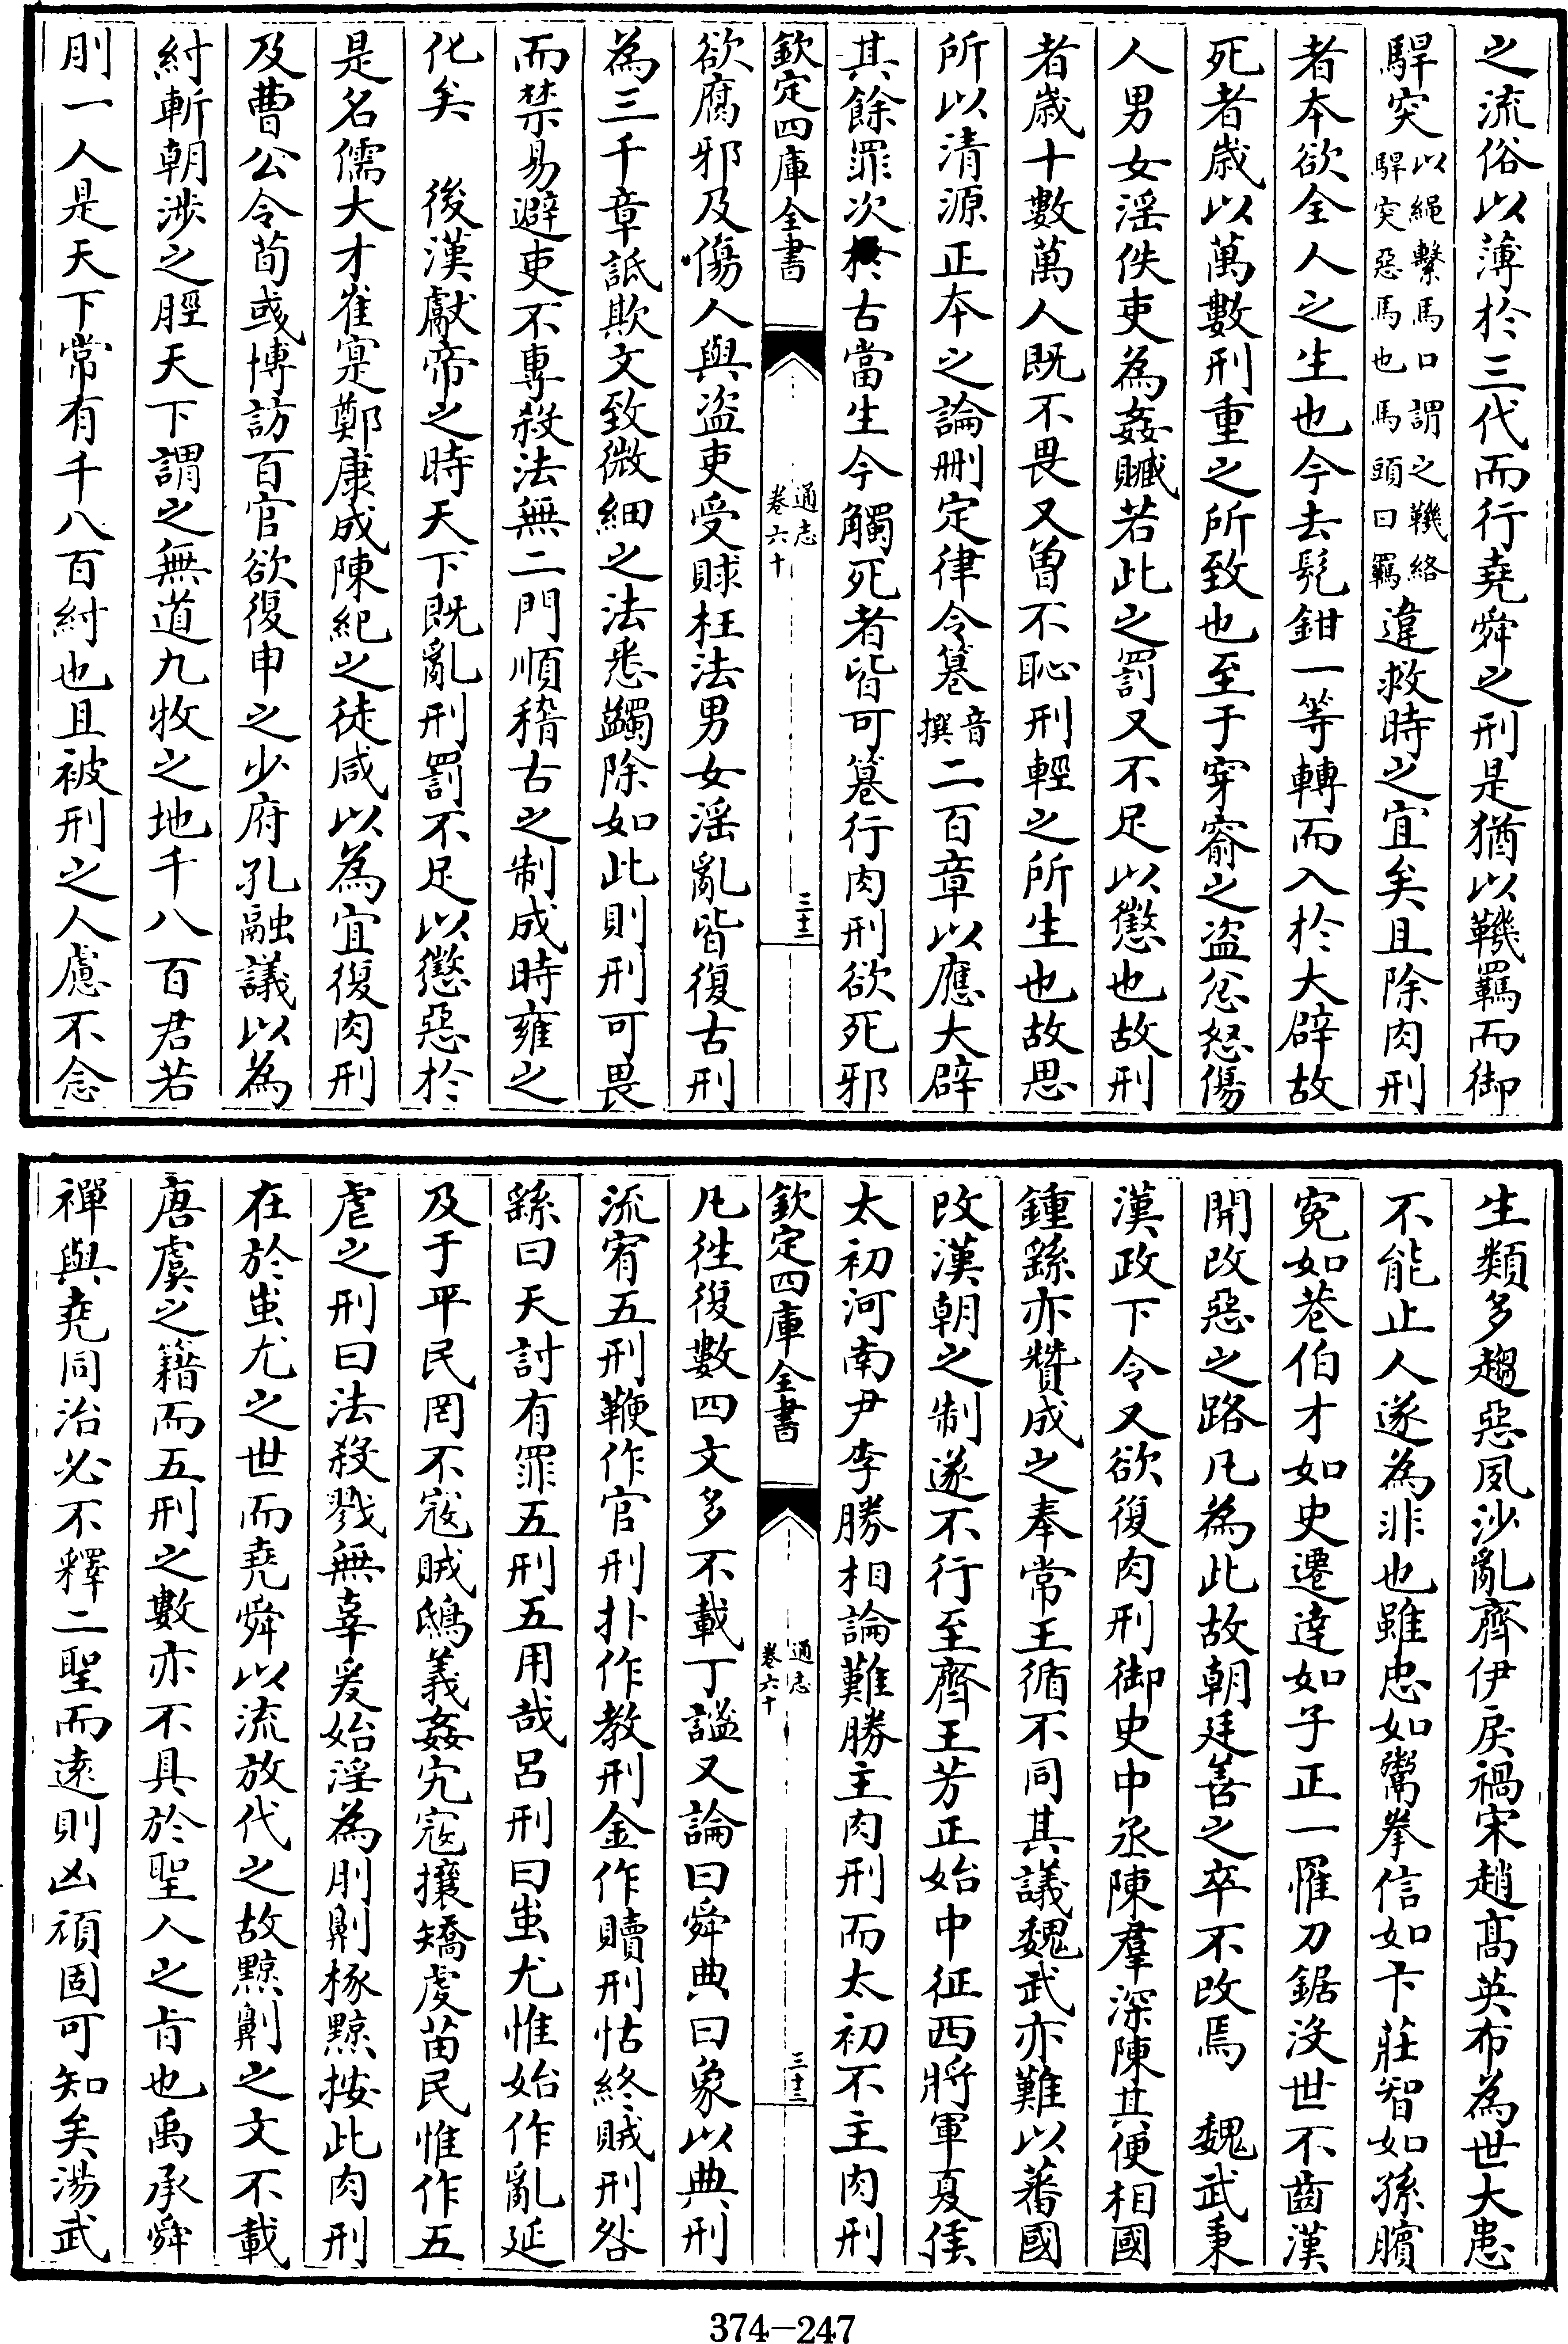 之流俗以薄於三代而行堯舜之刑是猶以鞿羈而御
駻突以繩繫馬口謂之鞿絡駻突惡馬也馬頭曰羈違救時之宜矣且除肉刑
者本欲全人之生也今去髡鉗一等轉而入於大辟故
死者歲以萬數刑重之所致也至于穿窬之盜忿怒傷
人男女淫佚吏為姦贓若此之罰又不足以懲也故刑
者歲十數萬人既不畏又曾不恥刑輕之所生也故思
所以清源正本之論刪定律令篹音撰二百章以應大辟
其餘罪次於古當生今觸死者皆可篹行肉刑欲死邪
欽定四庫全書
通志
卷六十
三十二
欲腐邪及傷人與盜吏受賕枉法男女淫亂皆復古刑
為三千章詆欺文致微細之法悉蠲除如此則刑可畏
而禁易避吏不專殺法無二門順稽古之制成時雍之
化矣　後漢獻帝之時天下既亂刑罰不足以懲惡於
是名儒大才崔寔鄭康成陳紀之徒咸以為宜復肉刑
及曹公令荀彧博訪百官欲復申之少府孔融議以為
紂斬朝涉之脛天下謂之無道九牧之地千八百君若
刖一人是天下常有千八百紂也且被刑之人慮不念
生類多趨惡夙沙亂齊伊戾禍宋趙高英布為世大患
不能止人遂為非也雖忠如鬻拳信如卞莊智如孫臏
冤如巷伯才如史遷達如子正一罹刀鋸沒世不齒漢
開改惡之路凡為此故朝廷善之卒不改焉　魏武秉
漢政下令又欲復肉刑御史中丞陳羣深陳其便相國
鍾繇亦贊成之奉常王循不同其議魏武亦難以蕃國
改漢朝之制遂不行至齊王芳正始中征西將軍夏侯
太初河南尹李勝相論難勝主肉刑而太初不主肉刑
欽定四庫全書
通志
卷六十
三十三
凡往復數四文多不載丁謐又論曰舜典曰象以典刑
流宥五刑鞭作官刑扑作教刑金作贖刑怙終賊刑咎
繇曰天討有罪五刑五用哉呂刑曰蚩尤惟始作亂延
及于平民罔不寇賊鴟義姦宄寇攘矯虔苗民惟作五
虐之刑曰法殺戮無辜爰始淫為刖劓椓黥按此肉刑
在於蚩尤之世而堯舜以流放代之故黥劓之文不載
唐虞之籍而五刑之數亦不具於聖人之旨也禹承舜
禪與堯同治必不釋二聖而遠則凶頑固可知矣湯武
374-247